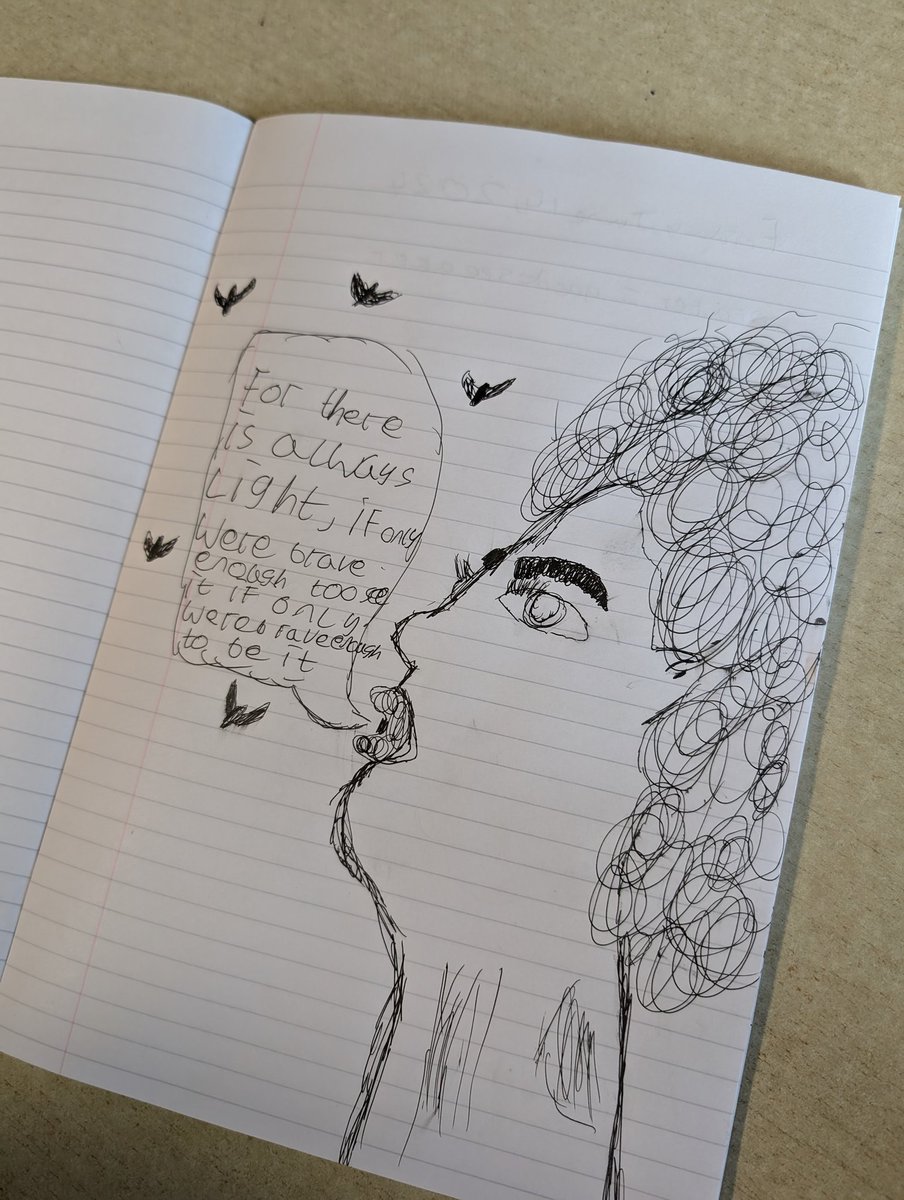 For there
is allways
Light, if only
were brave
enough toosee
it if only
were braveenough
to be it